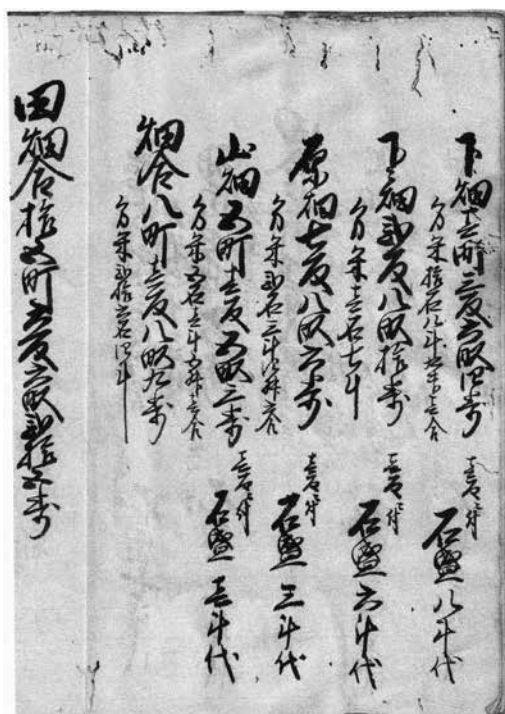 下畑壱町三反六畝四歩
分米拾石八斗九升壱合
壱反ニ付
石盛八斗代
下々畑弐反八畝拾歩
分米壱石七斗
壱反ニ付
石盛六斗代
原畑七反八畝六歩
分米弐石三斗四升六合
壱反ニ付
石盛三斗代
山畑五町壱反五畝三歩
分米五石壱斗五升壱合
壱反ニ付
石盛壱斗代
畑合八町壱反八畝九歩
分米弐拾六石四斗
田畑合拾五町五反六畝弐拾五歩